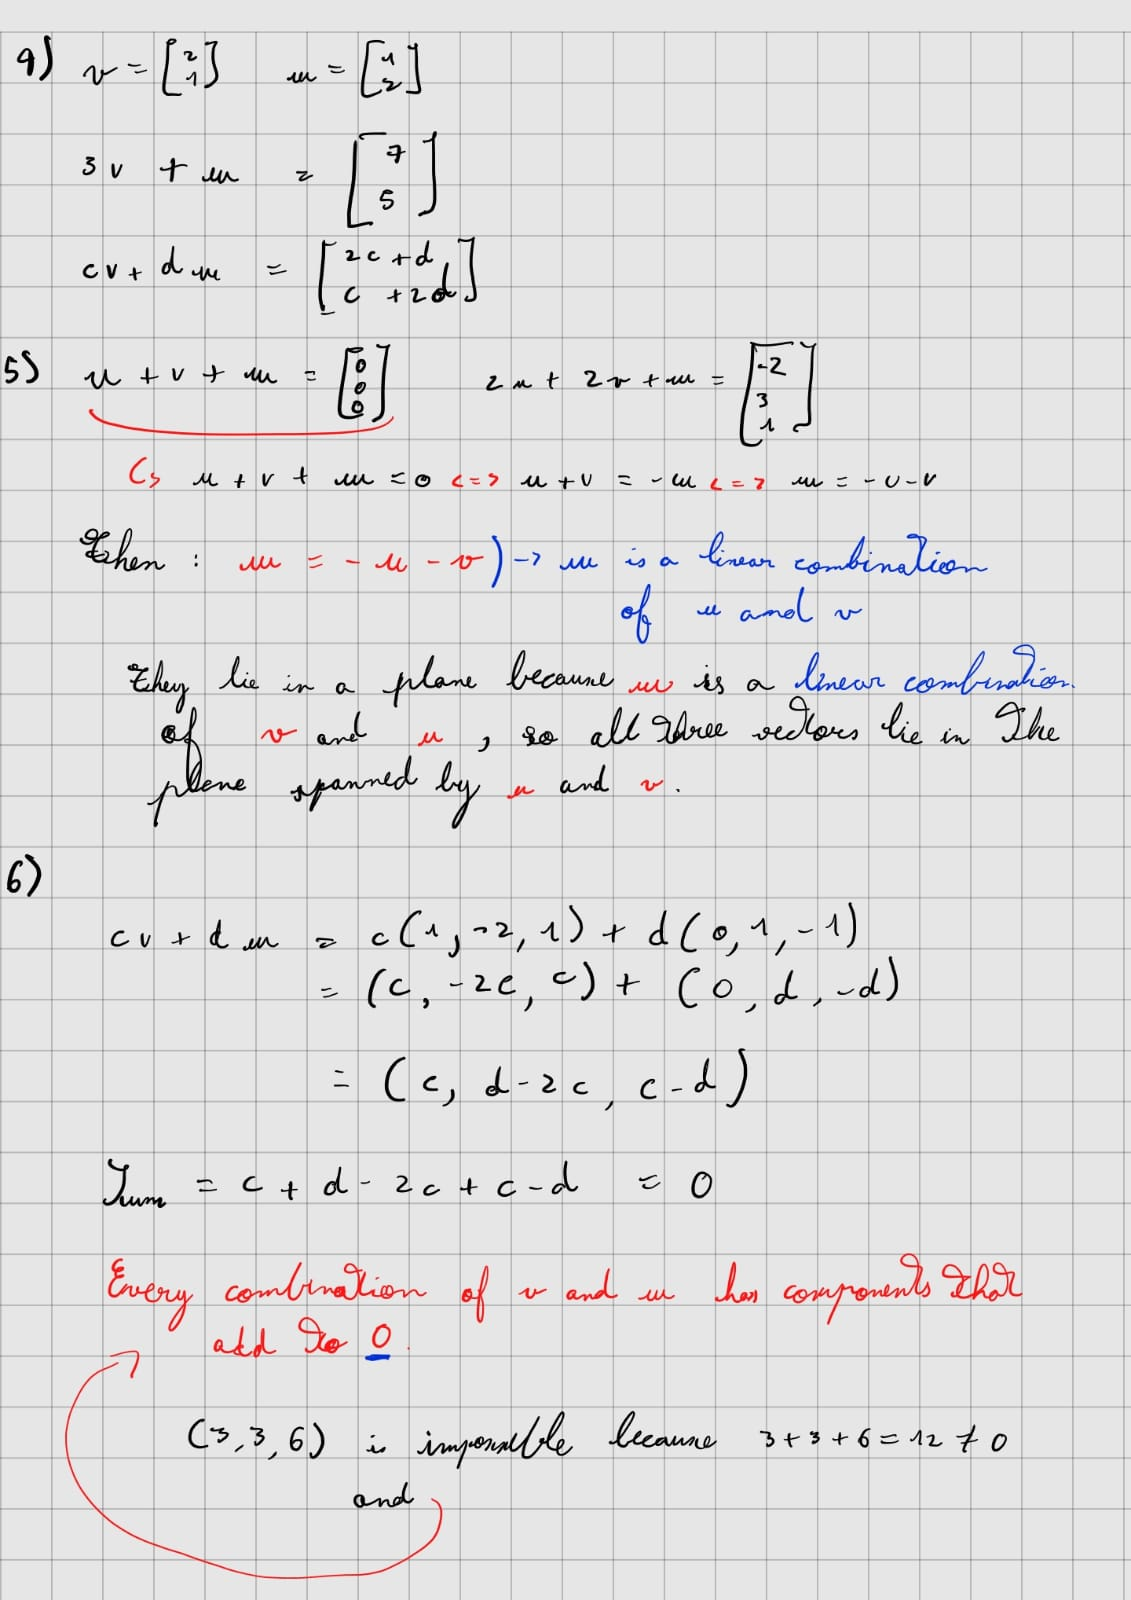 4) v = [2 1] w = [1 2]
3v + w = [7 5]
cv + dw = [2c + d c + 2d]
5) u + v + w = [0 0 0] 2u + 2v + w = [-2 3 1]
↳ u + v + w = 0 <=> u + v = -w <=> w = -u - v
Then : w = - u - v ) -> w is a linear combination
of u and v
They lie in a plane because w is a linear combination.
of v and u, so all three vectors lie in the
plane spanned by u and v.
6)
cv + dw = c(1, -2, 1) + d(0, 1, -1)
= (c, -2c, c) + (0, d, -d)
= (c, d-2c, c-d)
Sum = c + d - 2c + c - d = 0
Every combination of v and w has components that
add to 0.
(3, 3, 6) is impossible because 3 + 3 + 6 = 12 ≠ 0
and